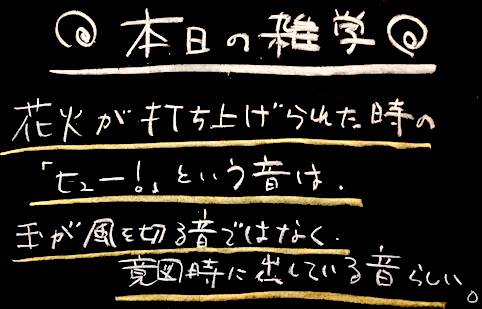 本日の雑学
花火が打ち上げられた時の
「ヒュー!」という音は、
玉が風を切る音ではなく、
意図時に出している音らしい。